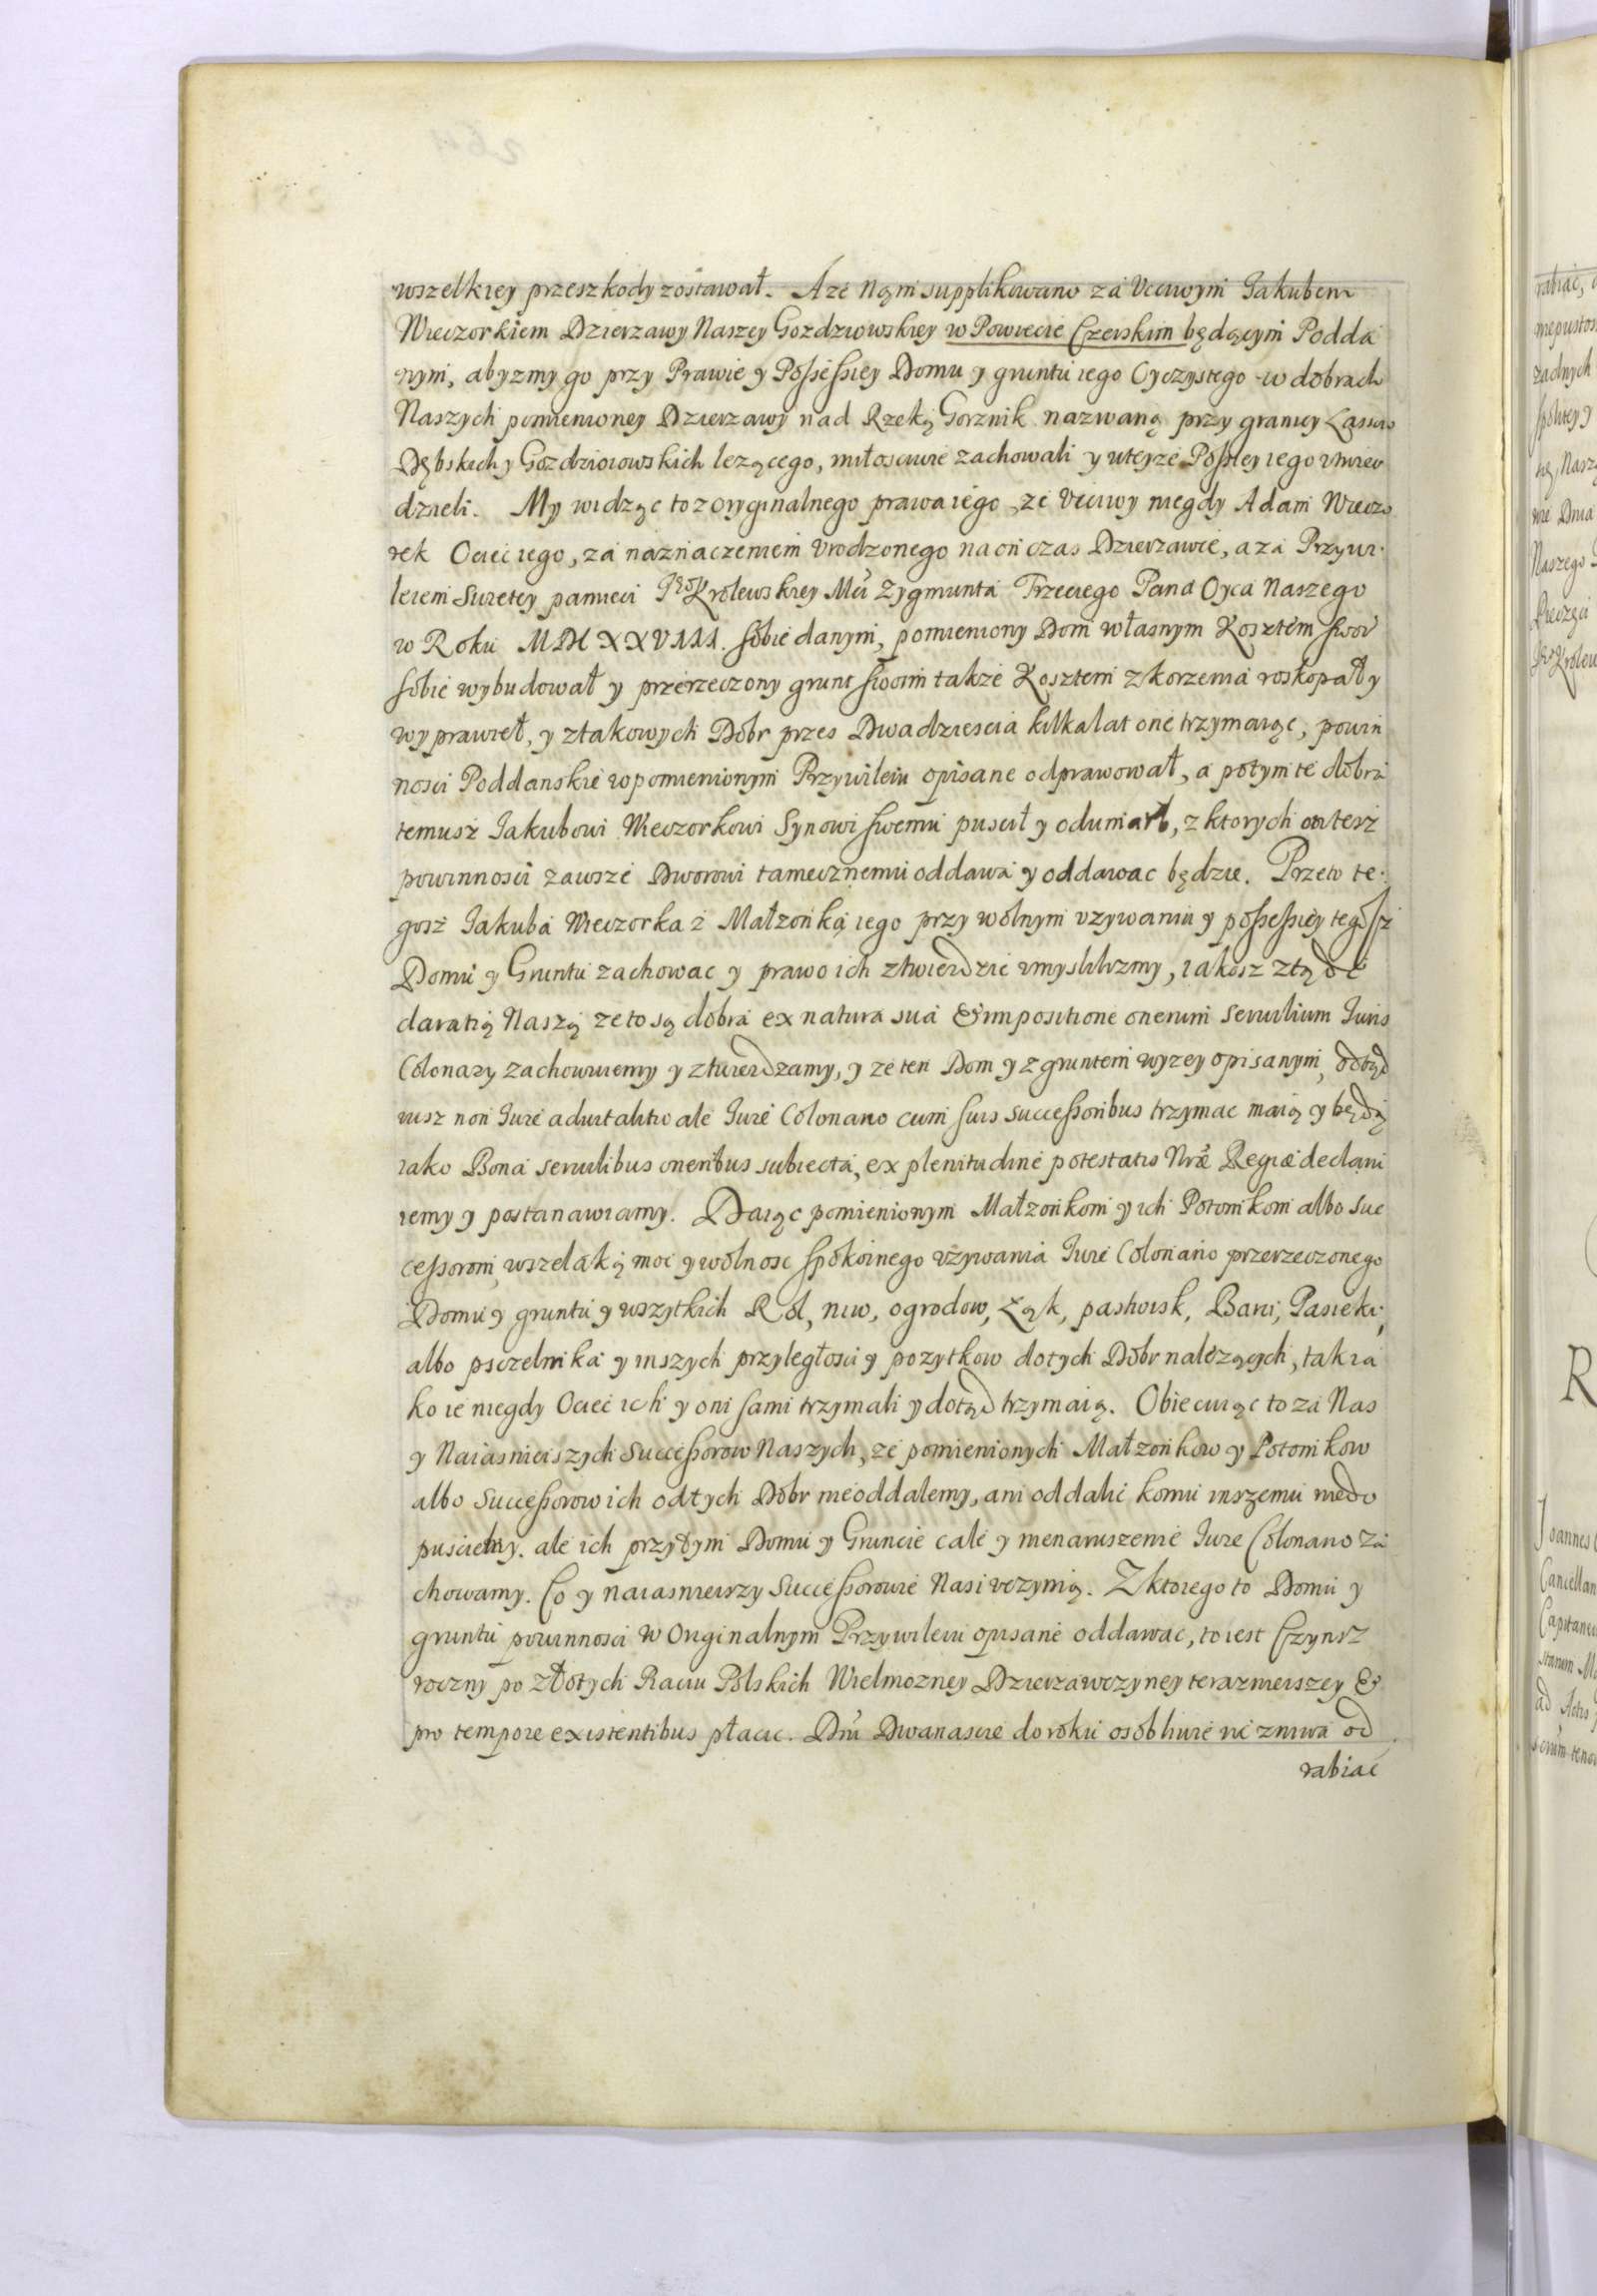 wszelkiey przeszkody zostawał. A ze Nam supplikowano za Vcciwym Iakubem
Wieczorkiem Dzierzawy Naszey Gozdziowskiey w Powiecie Czerskim będącym Podda
nym, abyzmy go przy Prawie y Possessiey Domu y gruntu iego Oyczystego w dobrach
Naszych pomienioney Dzierzawy nad Rzeką Gorznik nazwaną przy granicy Lassow
Dębskich y Gozdziorowskich lezącego, miłosciwie zachowali y wteyze Possiey iego vtwier
dzieli. My widząc to z oryginalnego prawa iego, ze Vcciwy niegdy Adam Wieczo
rek Ociec iego, za naznaczeniem Vrodzonego na on czas Dzierzawce, a za Przywi
leiem Swietey pamieci Krolewskiey Mci Zygmunta Trzeciego Pana Oyca Naszego
w Roku MDCXXVIII. sobie danym, pomieniony Dom własnym Kosztem swoi
sobie wybudował y przerzeczony grunt swoim takze Kosztem z korzenia roskopał y
wyprawieł, y z takowych Dobr przes Dwadziescia kilka lat one trzymaiąc, powin
nosci Poddanskie w pomienionym Przywileiu opisane odprawował, a potym te dobra
temusz Iakubowi Wieczorkowi Synowi swemu puscił y odumarł, z ktorych on tesz
powinnosci zawsze Dworowi tamecznemu oddawa y oddawac będzie. Przeto te
gosz Iakuba Wieczorka z Małzonką iego przy wolnym vzywaniu y possessiey tegosz
Domu y Gruntu zachowac y prawo ich ztwierdzic vmyslilizmy, iakosz ztąd de
claratią Naszą ze to są dobra ex natura sua & impositione onerum seruilium Iuris
Colonary zachowuiemy y ztwierdzamy, y ze ten Dom y z gruntem wyzey opisanym, odtąd
iusz non Iure aduitalitio ale Iure Colonario cum suis successoribus trzymac maią y będą
iako Bona seruilibus oneribus subiecta, ex plenitudine potestatis Nræ Regiæ declaru
iemy y postanawiamy. Daiąc pomienionym Małzonkom y ich Potomkom albo Suc
cessorom, wszelaką moc y wolnosc spokoinego vzywania Iure Colonario przerzeczonego
Domu y gruntu y wszytkich Rol, niw, ogrodow, Łąk, pastwisk, Barci, Pasieki,
albo psczelnika y inszych przyległosci y pozytkow do tych Dobr nalezących, tak ia
ko ie niegdy Ociec ich y oni sami trzymali y dotąd trzymaią. Obiecuiąc to za Nas
y Naiasnieiszych Successorow Naszych, ze pomienionych Małzonkow y Potomkow
albo Successorow ich od tych Dobr nieoddalemy, ani oddalic komu inszemu niedo
pusciemy. ale ich przy tym Domu y Gruncie cale y nienaruszenie Iure Colonario za
chowamy. Co y naiasnieiszy Successorowie Nasi vczynią. Z ktorego to Domu y
gruntu powinnosci w Originalnym Przywileiu opisane oddawac, to iest Czynsz
roczny po złotych Raciu Polskich Wielmozney Dzierzawczyney terazniejszey &
pro tempore existentibus płacic. Dni Dwanascie do roku osobliwie we zniwa od
rabiac